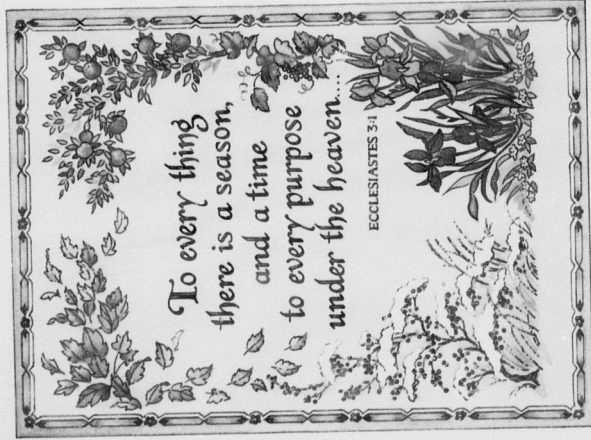 To every thing
there is a season,
and a time
to every purpose
under the heaven....
ECCLESIASTES 3:1